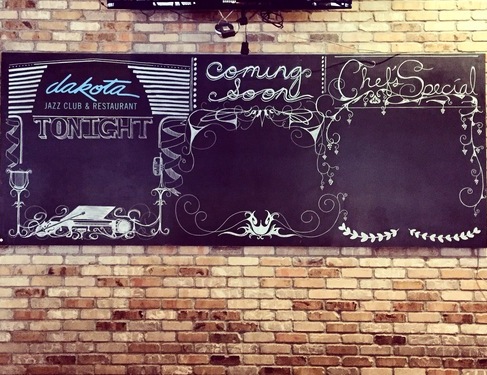 dakota
JAZZ CLUB & RESTAURANT
TONIGHT
coming
soon
Chef's Special